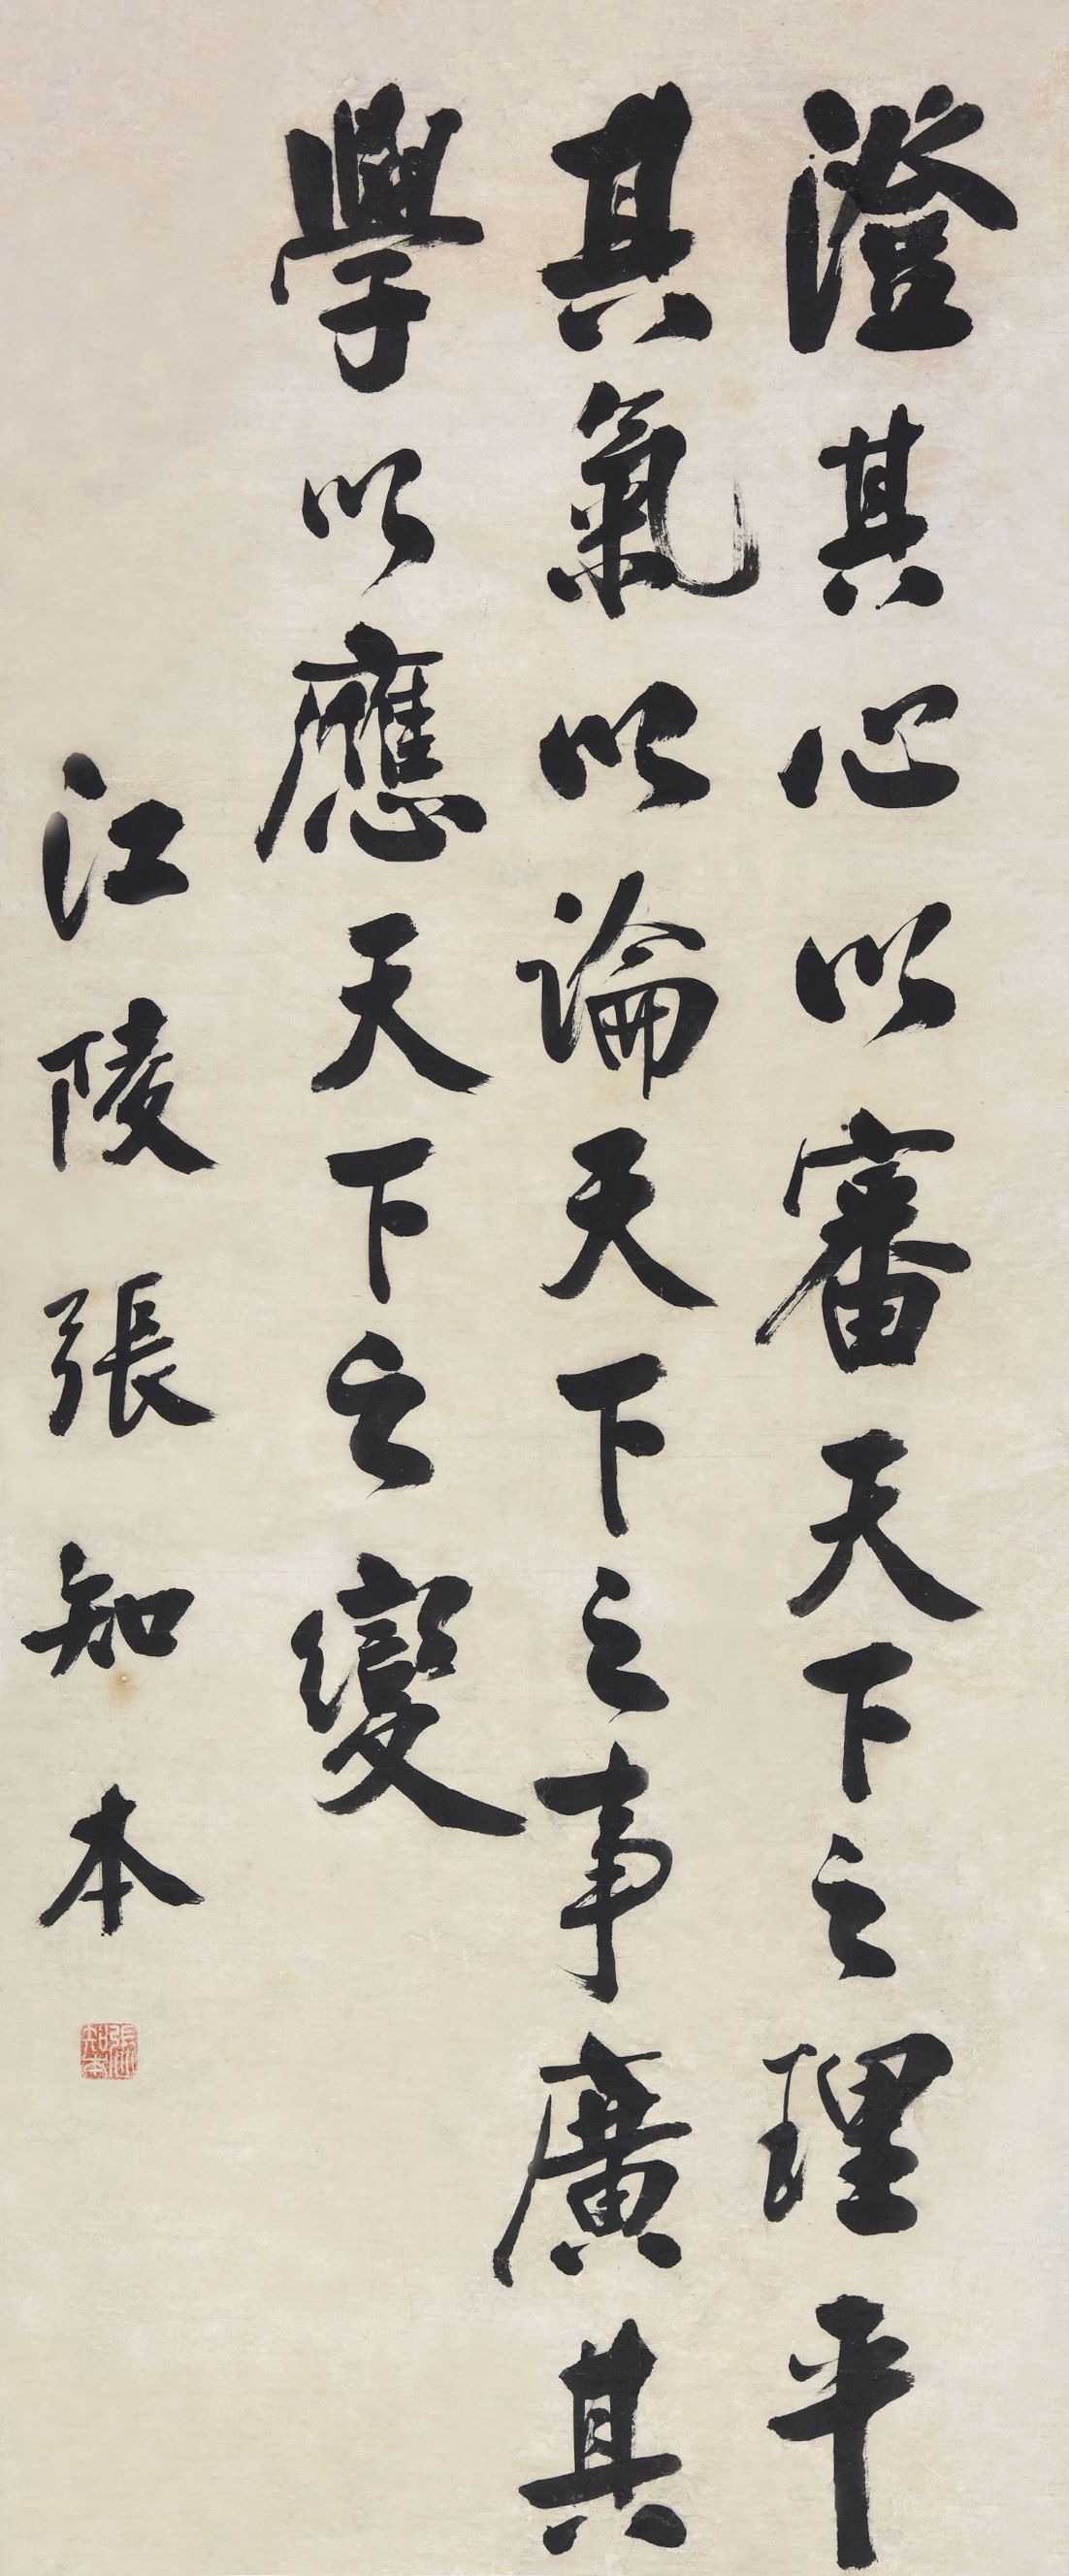 澄其心以審天下之理平
其氣以論天下之事廣其
學以應天下之變
江陵張知本
張知本